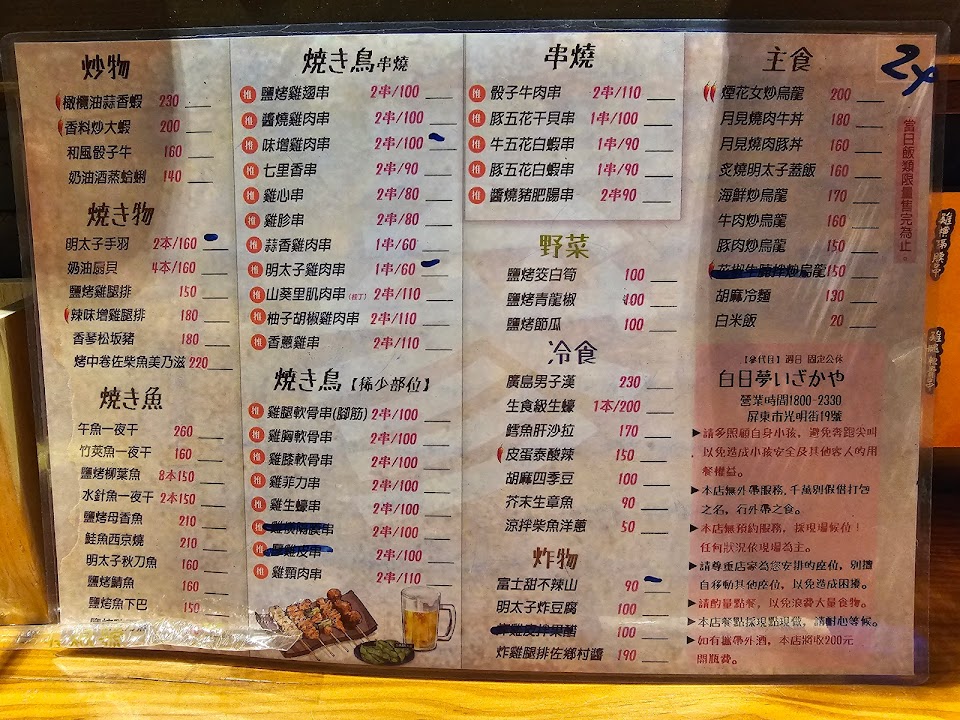 炒物
橄欖油蒜香蝦 230
香料炒大蝦 200
和風骰子牛 160
奶油酒蒸蛤蜊 140
焼き物
明太子手羽 2本/160
奶油扇貝 4本/160
鹽烤雞腿排 150
辣味增雞腿排 180
香琴松坂豬 180
烤中卷佐柴魚美乃滋 220
焼き魚
午魚一夜干 260
竹莢魚一夜干 160
鹽烤柳葉魚 8本150
水針魚一夜干 2本150
鹽烤母香魚 210
鮭魚西京燒 210
明太子秋刀魚 160
鹽烤鯖魚 160
鹽烤魚下巴 150
焼き鳥串燒
推 鹽烤雞翅串 2串/100
推 醬燒雞肉串 2串/100
推 味增雞肉串 2串/100
推 七里香串 2串/90
推 雞心串 2串/80
推 雞胗串 2串/80
推 蒜香雞肉串 1串/60
推 明太子雞肉串 1串/60
推 山葵里肌肉串 2串/110
推 柚子胡椒雞肉串 2串/110
推 香蔥雞串 2串/110
焼き鳥【稀少部位】
推 雞腿軟骨串(腳筋) 2串/100
推 雞胸軟骨串 2串/100
推 雞膝軟骨串 2串/100
推 雞菲力串 2串/100
推 雞生蠔串 2串/100
推 雞橫隔膜串 2串/100
推 雞皮串 2串/100
推 雞頸肉串 2串/110
串燒
推 骰子牛肉串 2串/110
推 豚五花干貝串 1串/100
推 牛五花白蝦串 1串/90
推 豚五花白蝦串 1串/90
推 醬燒豬肥腸串 2串90
野菜
鹽烤筊白筍 100
鹽烤青龍椒 100
鹽烤節瓜 100
冷食
廣島男子漢 230
生食級生蠔 1本/200
鱈魚肝沙拉 170
皮蛋泰酸辣 150
胡麻四季豆 100
芥末生章魚 90
涼拌柴魚洋蔥 50
炸物
富士甜不辣山 90
明太子炸豆腐 100
炸雞皮拌果醋 100
炸雞腿排佐鄉村醬 190
主食
煙花女炒烏龍 200
月見燒肉牛丼 180
月見燒肉豚丼 160
炙燒明太子蓋飯 160
海鮮炒烏龍 170
牛肉炒烏龍 160
豚肉炒烏龍 150
花椒牛腩拌炒烏龍 150
胡麻冷麵 130
白米飯 20
當日飯類限量售完為止。
【參代目】週日 固定公休
白日夢いざかや
營業時間1800-2330
屏東市光明街19號
▶請多照顧自身小孩，避免奔跑尖叫
以免造成小孩安全及其他客人的用
餐權益。
▶本店無外帶服務，千萬別假借打包
之名，行外帶之食。
▶本店無預約服務，採現場候位！
任何狀況依現場為主。
▶請尊重店家為您安排的座位，別擅
自移動其他座位，以免造成困擾。
▶請酌量點餐，以免浪費大量食物。
▶本店餐點採現點現做，請耐心等候。
▶如有攜帶外酒，本店將收200元
開瓶費。